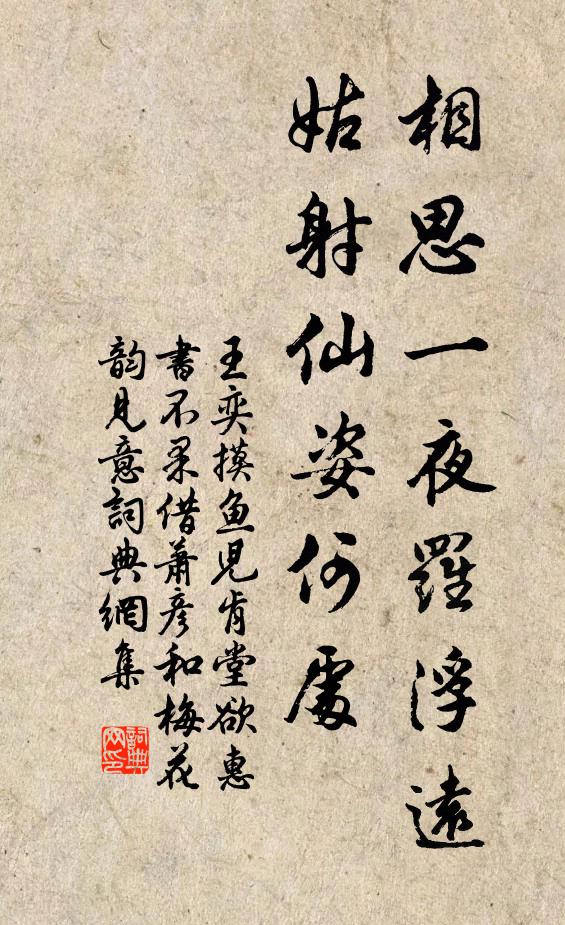 相思一夜羅浮遠
姑射仙姿何處
王奕摸魚兒肯堂欲惠
書不果借蕭彥和梅花
韵見意詞典網集
詞典
网印